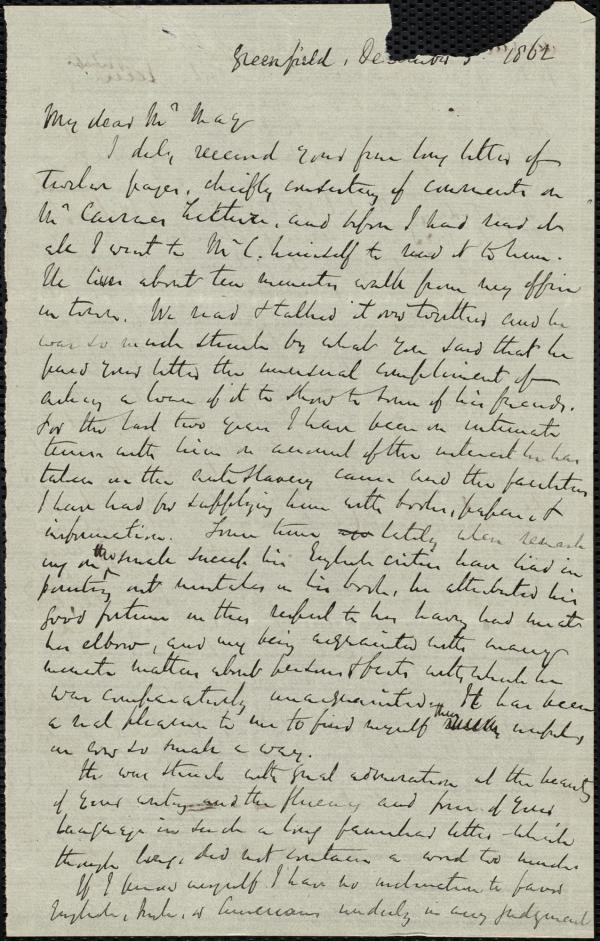 Greenfield, December 5 1862
My dear Mr May
I duly received your fine long letter of
twelve pages, chiefly consisting of comments on
Mr Cairnes Lecture, and before I had read it
all I went to Mr C. himself to read it to him.
He lives about ten minutes walk from my office
in town. We read & talked it over together and he
was so much struck by what you said that he
paid your letter the unusual compliment of
asking a loan of it to show to some of his friends.
For the last two years I have been on intimate
terms with him on account of the interest he has
taken in the anti Slavery cause and the facilities
I have had for supplying him with books, papers &
information. Some time lately when remark
ing on the small success his English critics have had in
pointing out mistakes in his book, he attributed his
good fortune in this respect to his having had me at
his elbow, and my being acquainted with many
minute matters about persons & facts with which he
was comparatively unacquainted. It has been
a real pleasure to me to find myself thus useful
in ever so small a way.
He was struck with great admiration at the beauty
of your writing and the fluency and force of your
language in such a long familiar letter which
though long, did not contain a word too much
If I know myself I have no inclination to favor
English, Irish, or Americans unduly in any judgment